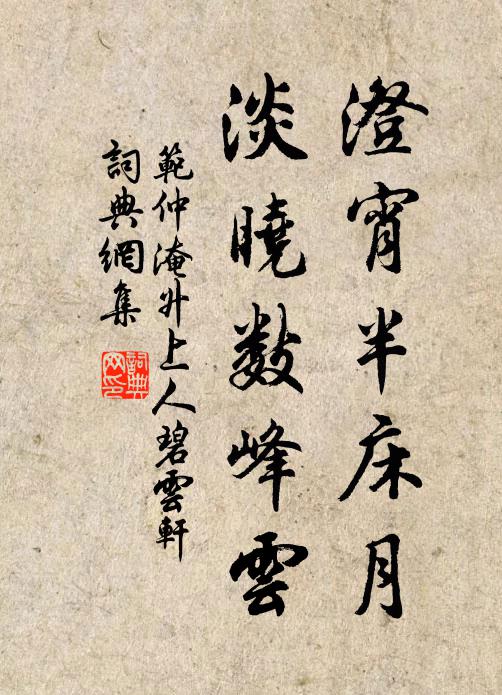 澄宵半床月
淡曉數峰雲
範仲淹升上人碧雲軒
詞典網集
詞典網印